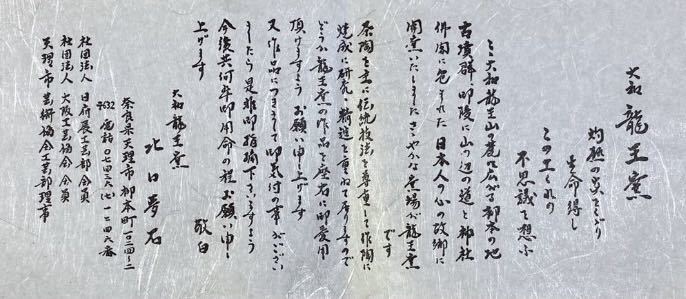 大和 龍王窯
灼熱の炎をくぐり
生命得し
この土くれの
不思議を想ふ
ここ大和龍王山の麓に広がる都本の地
古墳群 御陵に山の辺の道と神社
佛閣に包まれた日本人の心の故郷に
開窯いたしましたささやかな窯場が龍王窯
です
茶陶を主に伝統技法を尊重して作陶に
焼成に研究、精進を重ねて居りますので
どうか龍王窯の作品を座右に御愛用
頂けますよう お願い申し上げます
又作品につきまして御気付の事がござい
ましたら是非御指摘下さいますよう
今後共何卒御用命の程お願い申し
上げます
敬白
大和 龍王窯
北口夢石
奈良県天理市
632 電話
社団法人 日府展工芸部会員
社団法人 大阪工芸協会会員
天理市芸術協会工芸部理事